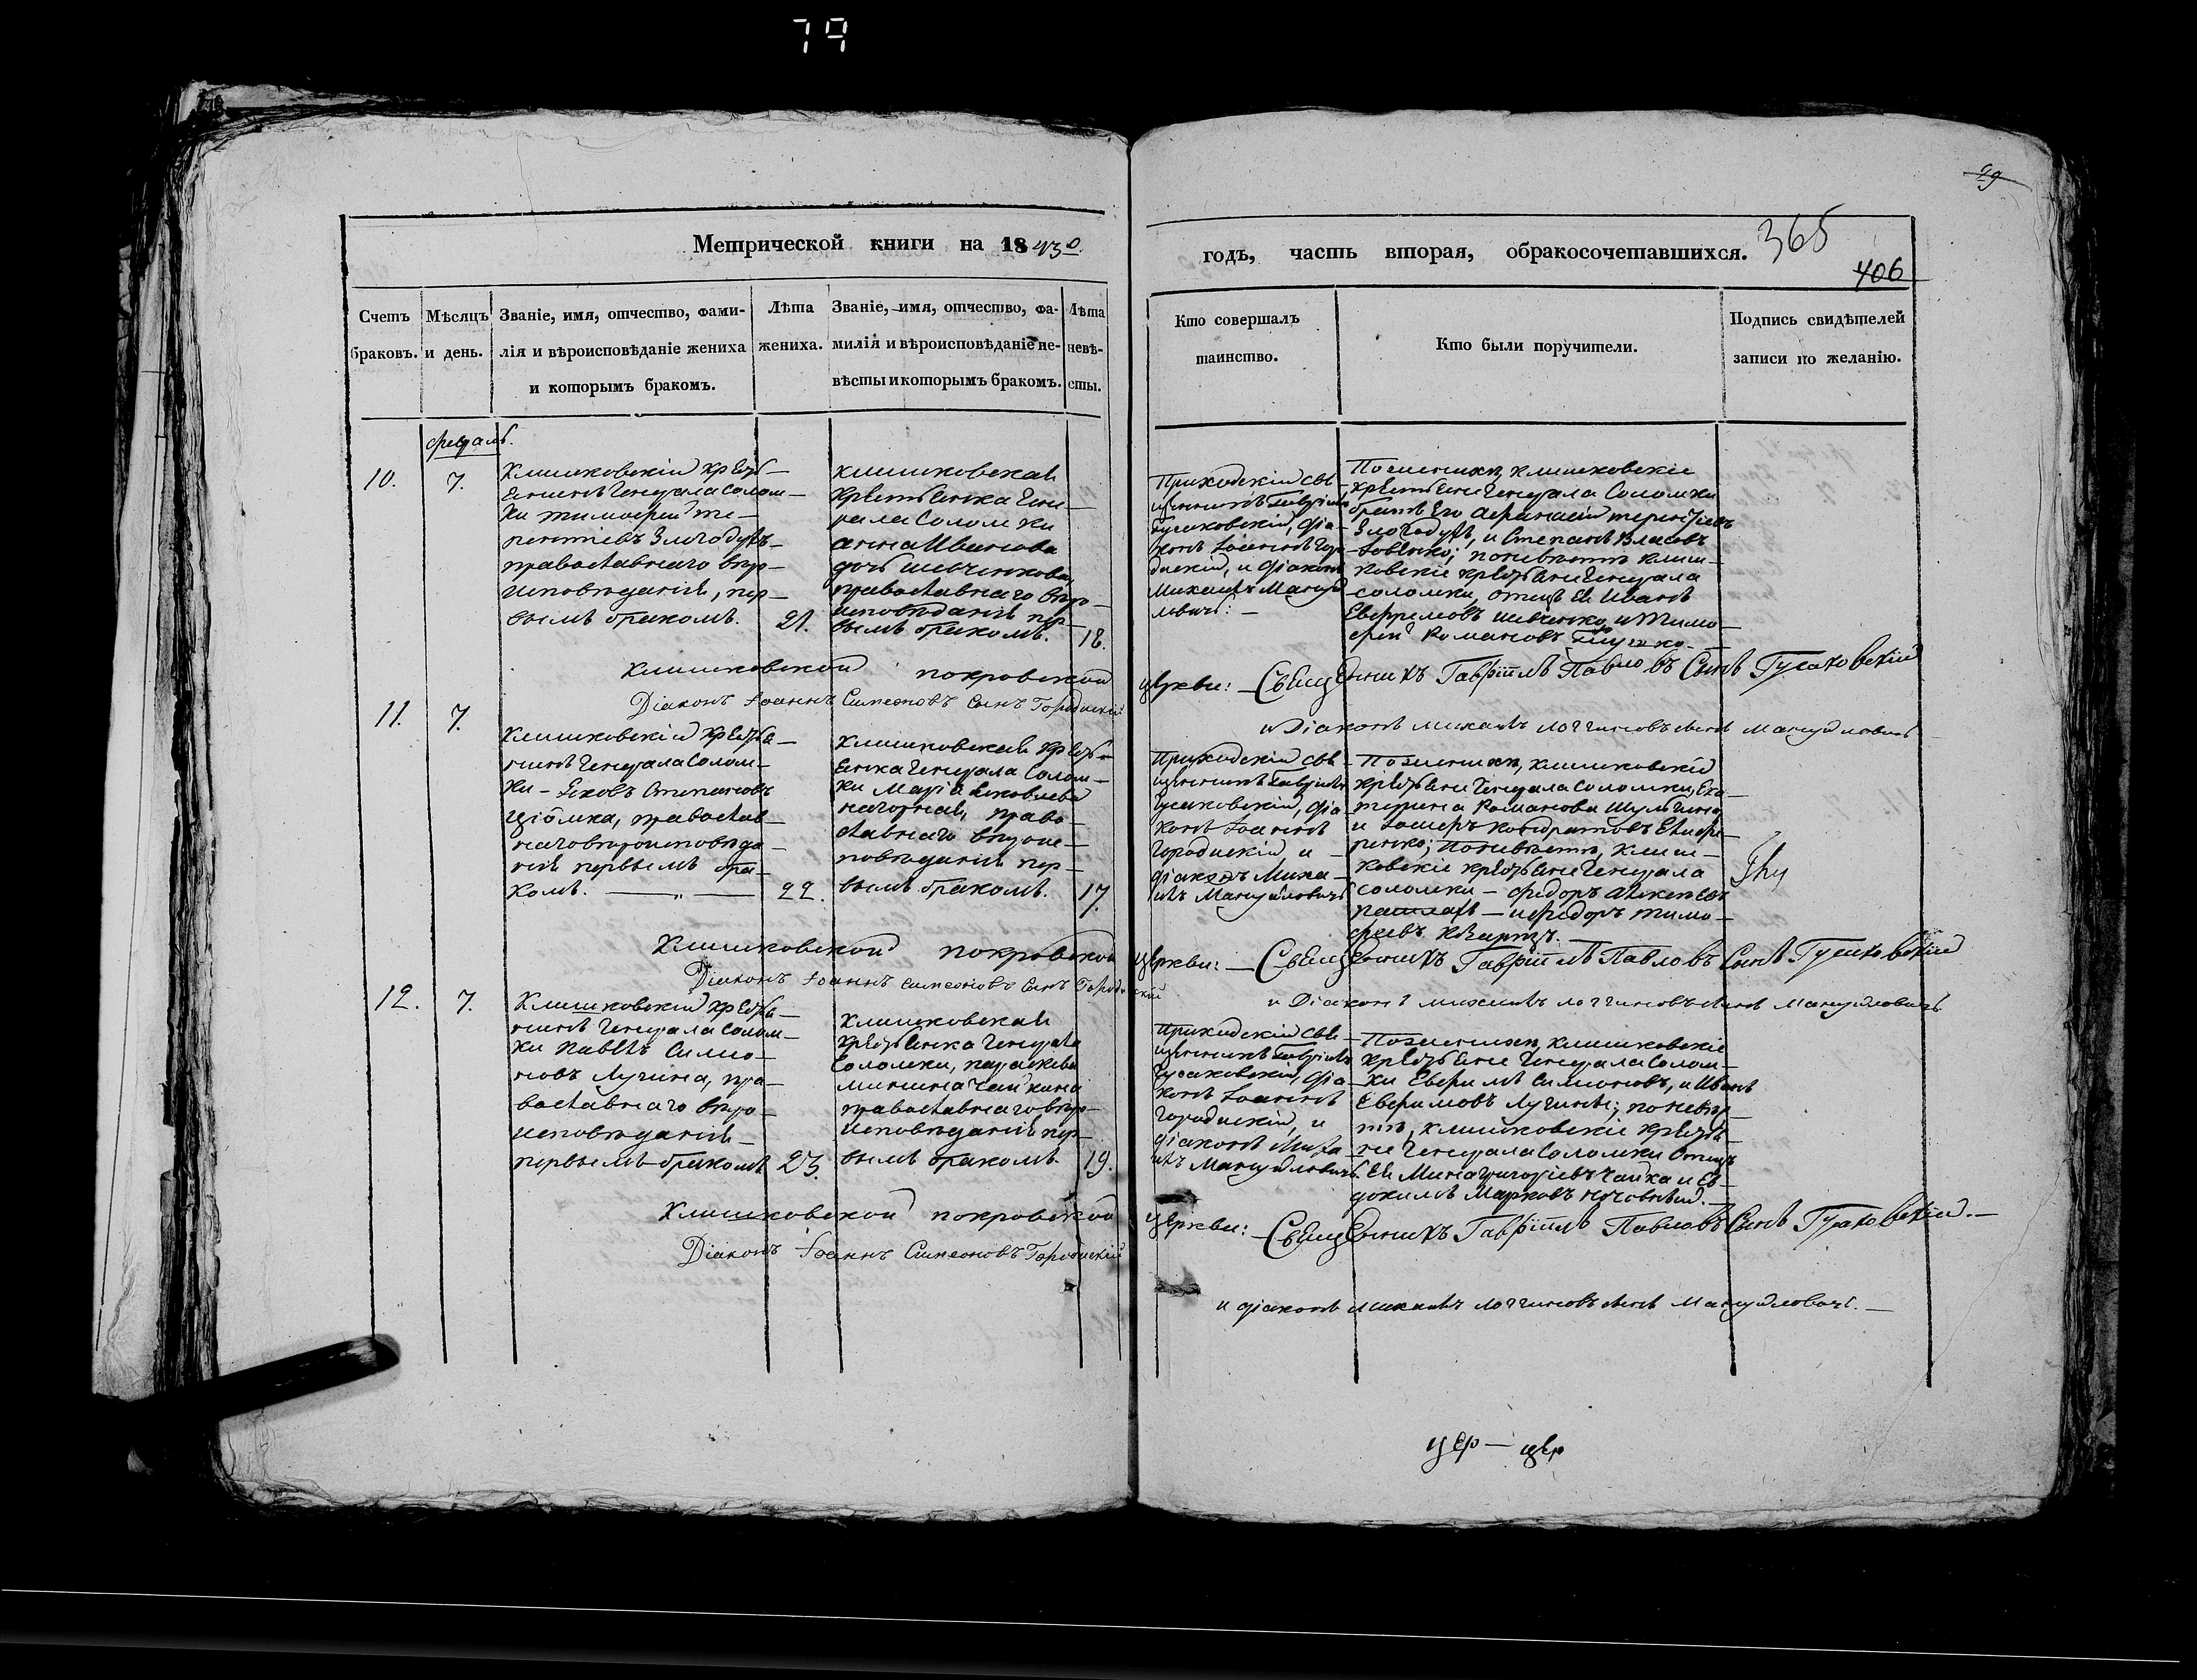 79
29
Метрической книги на 1843й
годъ, часть вторая, обракосочетавшихся.
365
406
Счетъ браковъ.
Мѣсяцъ и день.
Званіе, имя, отчество, фами-
лія и вѣроисповѣданіе жениха
и которымъ бракомъ.
Лѣта
жениха.
Званіе, имя, отчество, фа-
милія и вѣроисповѣданіе не-
вѣсты и которымъ бракомъ.
Лѣта
невѣ-
сты.
Кто совершалъ
таинство.
Кто были поручители.
Подпись свидѣтелей
записи по желанію.
февраль.
10.
7.
Клишковскій кресть-
енинъ Генерала Солом-
ки Тимофей Те-
рентіевъ Злогодухъ
православнаго вѣро-
исповѣданія, пер-
вымъ бракомъ.
21.
Клишковская
крестьенка Гене-
рала Соломки
Анна Иванова
дочь Шевченкова,
православнаго вѣро-
исповѣданія пер-
вымъ бракомъ.
18.
Приходскій свя-
щенникъ Гавріилъ
Гусаковскій, діа-
конъ Іоаннъ Горо-
дискій, и діаконъ
Михаилъ Мануй-
ловичъ: —
По женихѣ, клишковскіе
крестьяне Генерала Соломки
братъ его Афанасій Терентіевъ
Злогодухъ, и Степанъ Власовъ
по невѣстѣ клиш-
ковскіе крестьяне Генерала
Соломки, отецъ ея Иванъ
Евфремовъ Шевченко и Тимо-
фей Романовъ
Клишковской покровской
церкви: — Священникъ Гавріилъ Павловъ Сынъ Гусаковскій
Діаконъ Іоаннъ Симеоновъ Сынъ Городискій
и Діаконъ Михаилъ Логгиновъ сынъ Мануйловичъ
11.
7.
Клишковскій крестья-
нинъ Генерала Солом-
ки — Яковъ Степановъ
Цiомка, православ-
наго вѣроисповѣда-
нія первымъ бра-
комъ. — „ —
22.
Клишковская кресть-
енка Генерала Солом-
ки Марія Яковлева
Нагорная, право-
славнаго вѣроис-
повѣданія пер-
вымъ бракомъ.
17.
Приходскій свя-
щенникъ Гавріилъ
Гусаковскій, діа-
конъ Іоаннъ
Городискій и
діаконъ Миха-
илъ Мануйловичъ
По женихѣ, клишковскіе
крестьяне Генерала Соломки, Ека-
терина Романова
и Кондратовъ
по невѣстѣ, клиш-
ковскіе крестьяне Генерала
Соломки — Федоръ Алексѣевъ
— и Федоръ Тимо-
феевъ Кварта.
Клишковской покровской
церкви: — Священникъ Гавріилъ Павловъ Сынъ Гусаковскій
Діаконъ Іоаннъ Симеоновъ Сынъ Городискій
и Діаконъ Михаилъ Логгиновъ сынъ Мануйловичъ
12.
7.
Клишковскій кресть-
нинъ Генерала Солом-
ки Павелъ Симо-
новъ Лугина, пра-
вославнаго вѣро-
исповѣданія —
первымъ бракомъ
23.
Клишковская
крестьенка Генерала
Соломки, Параскева
Минина Чайкина
православнаго вѣро-
исповѣданія пер-
вымъ бракомъ.
19.
Приходскій свя-
щенникъ Гавріилъ
Гусаковскій, діа-
конъ Іоаннъ
Городискій, и
діаконъ Миха-
илъ Мануйловичъ
По женихѣ, клишковскіе
крестьяне Генерала Солом-
ки Евфимъ Симоновъ, и Иванъ
Евфимовъ Лугины; по невѣс-
тѣ, клишковскіе крестья-
не Генерала Соломки отецъ
ея Мина Григоріевъ Чайка и Ев-
докимъ Марковъ
Клишковской покровской
церкви: Священникъ Гавріилъ Павловъ Сынъ Гусаковскій. —
Діаконъ Іоаннъ Симеоновъ Городискій
и діаконъ Михаилъ Логгиновъ сынъ Мануйловичъ. —
цер — цер